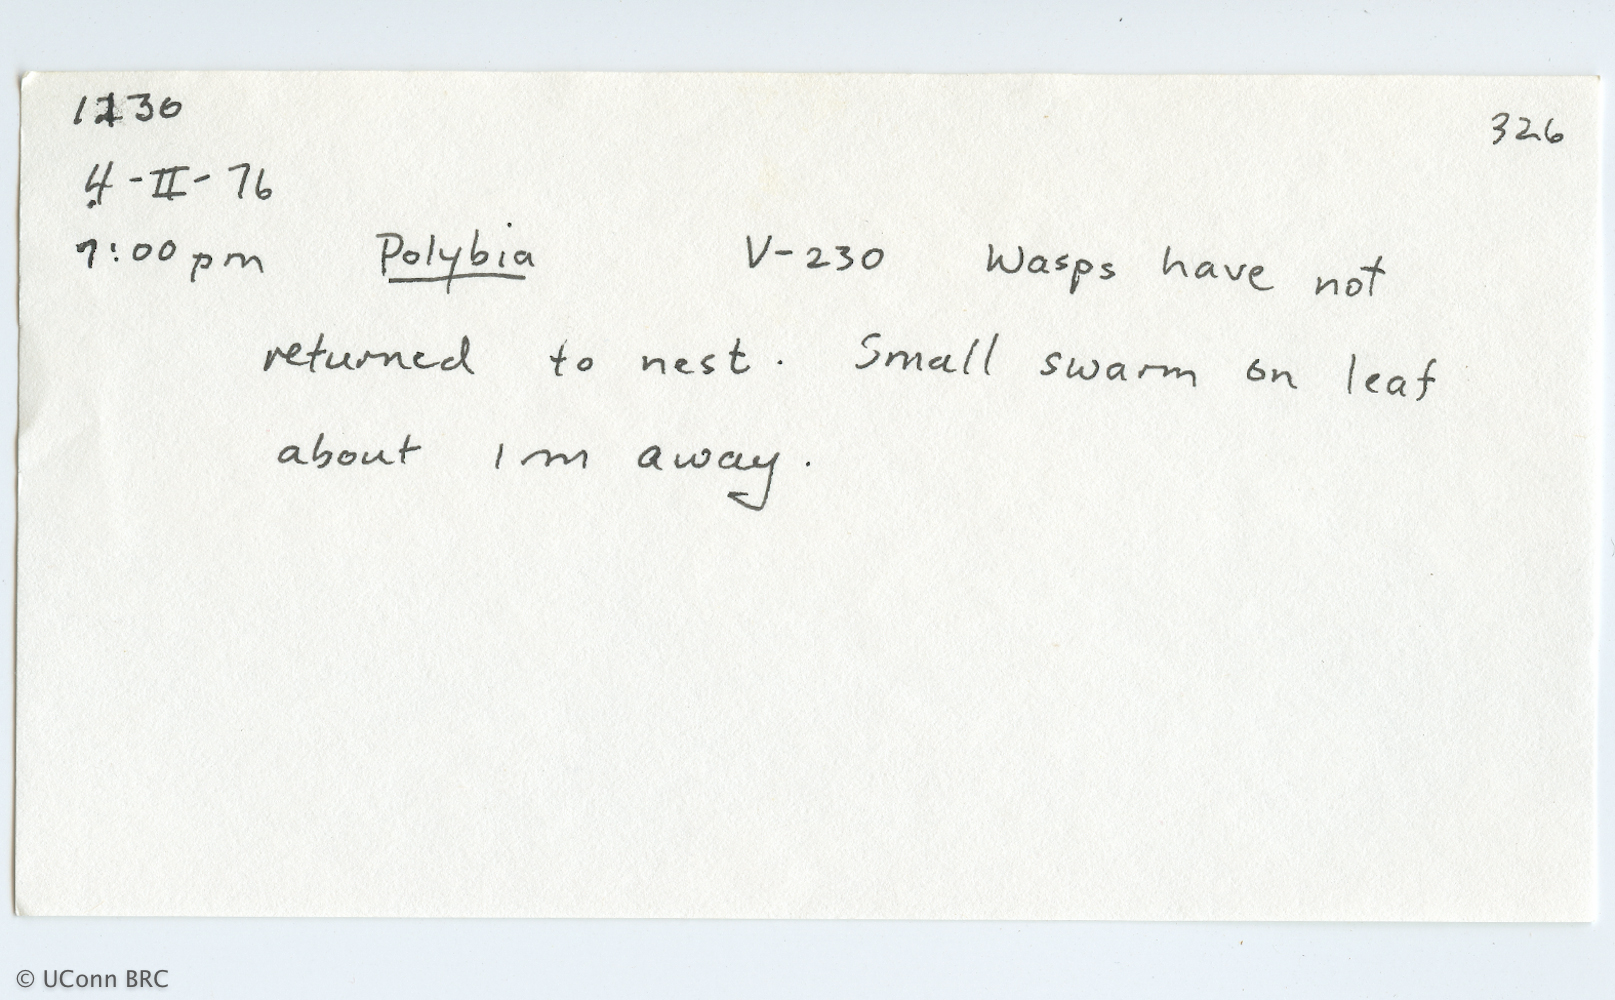 1130
326
4-II-76
7:00 pm Polybia V-230 Wasps have not
returned to nest. Small swarm on leaf
about 1 m away.
© UConn BRC